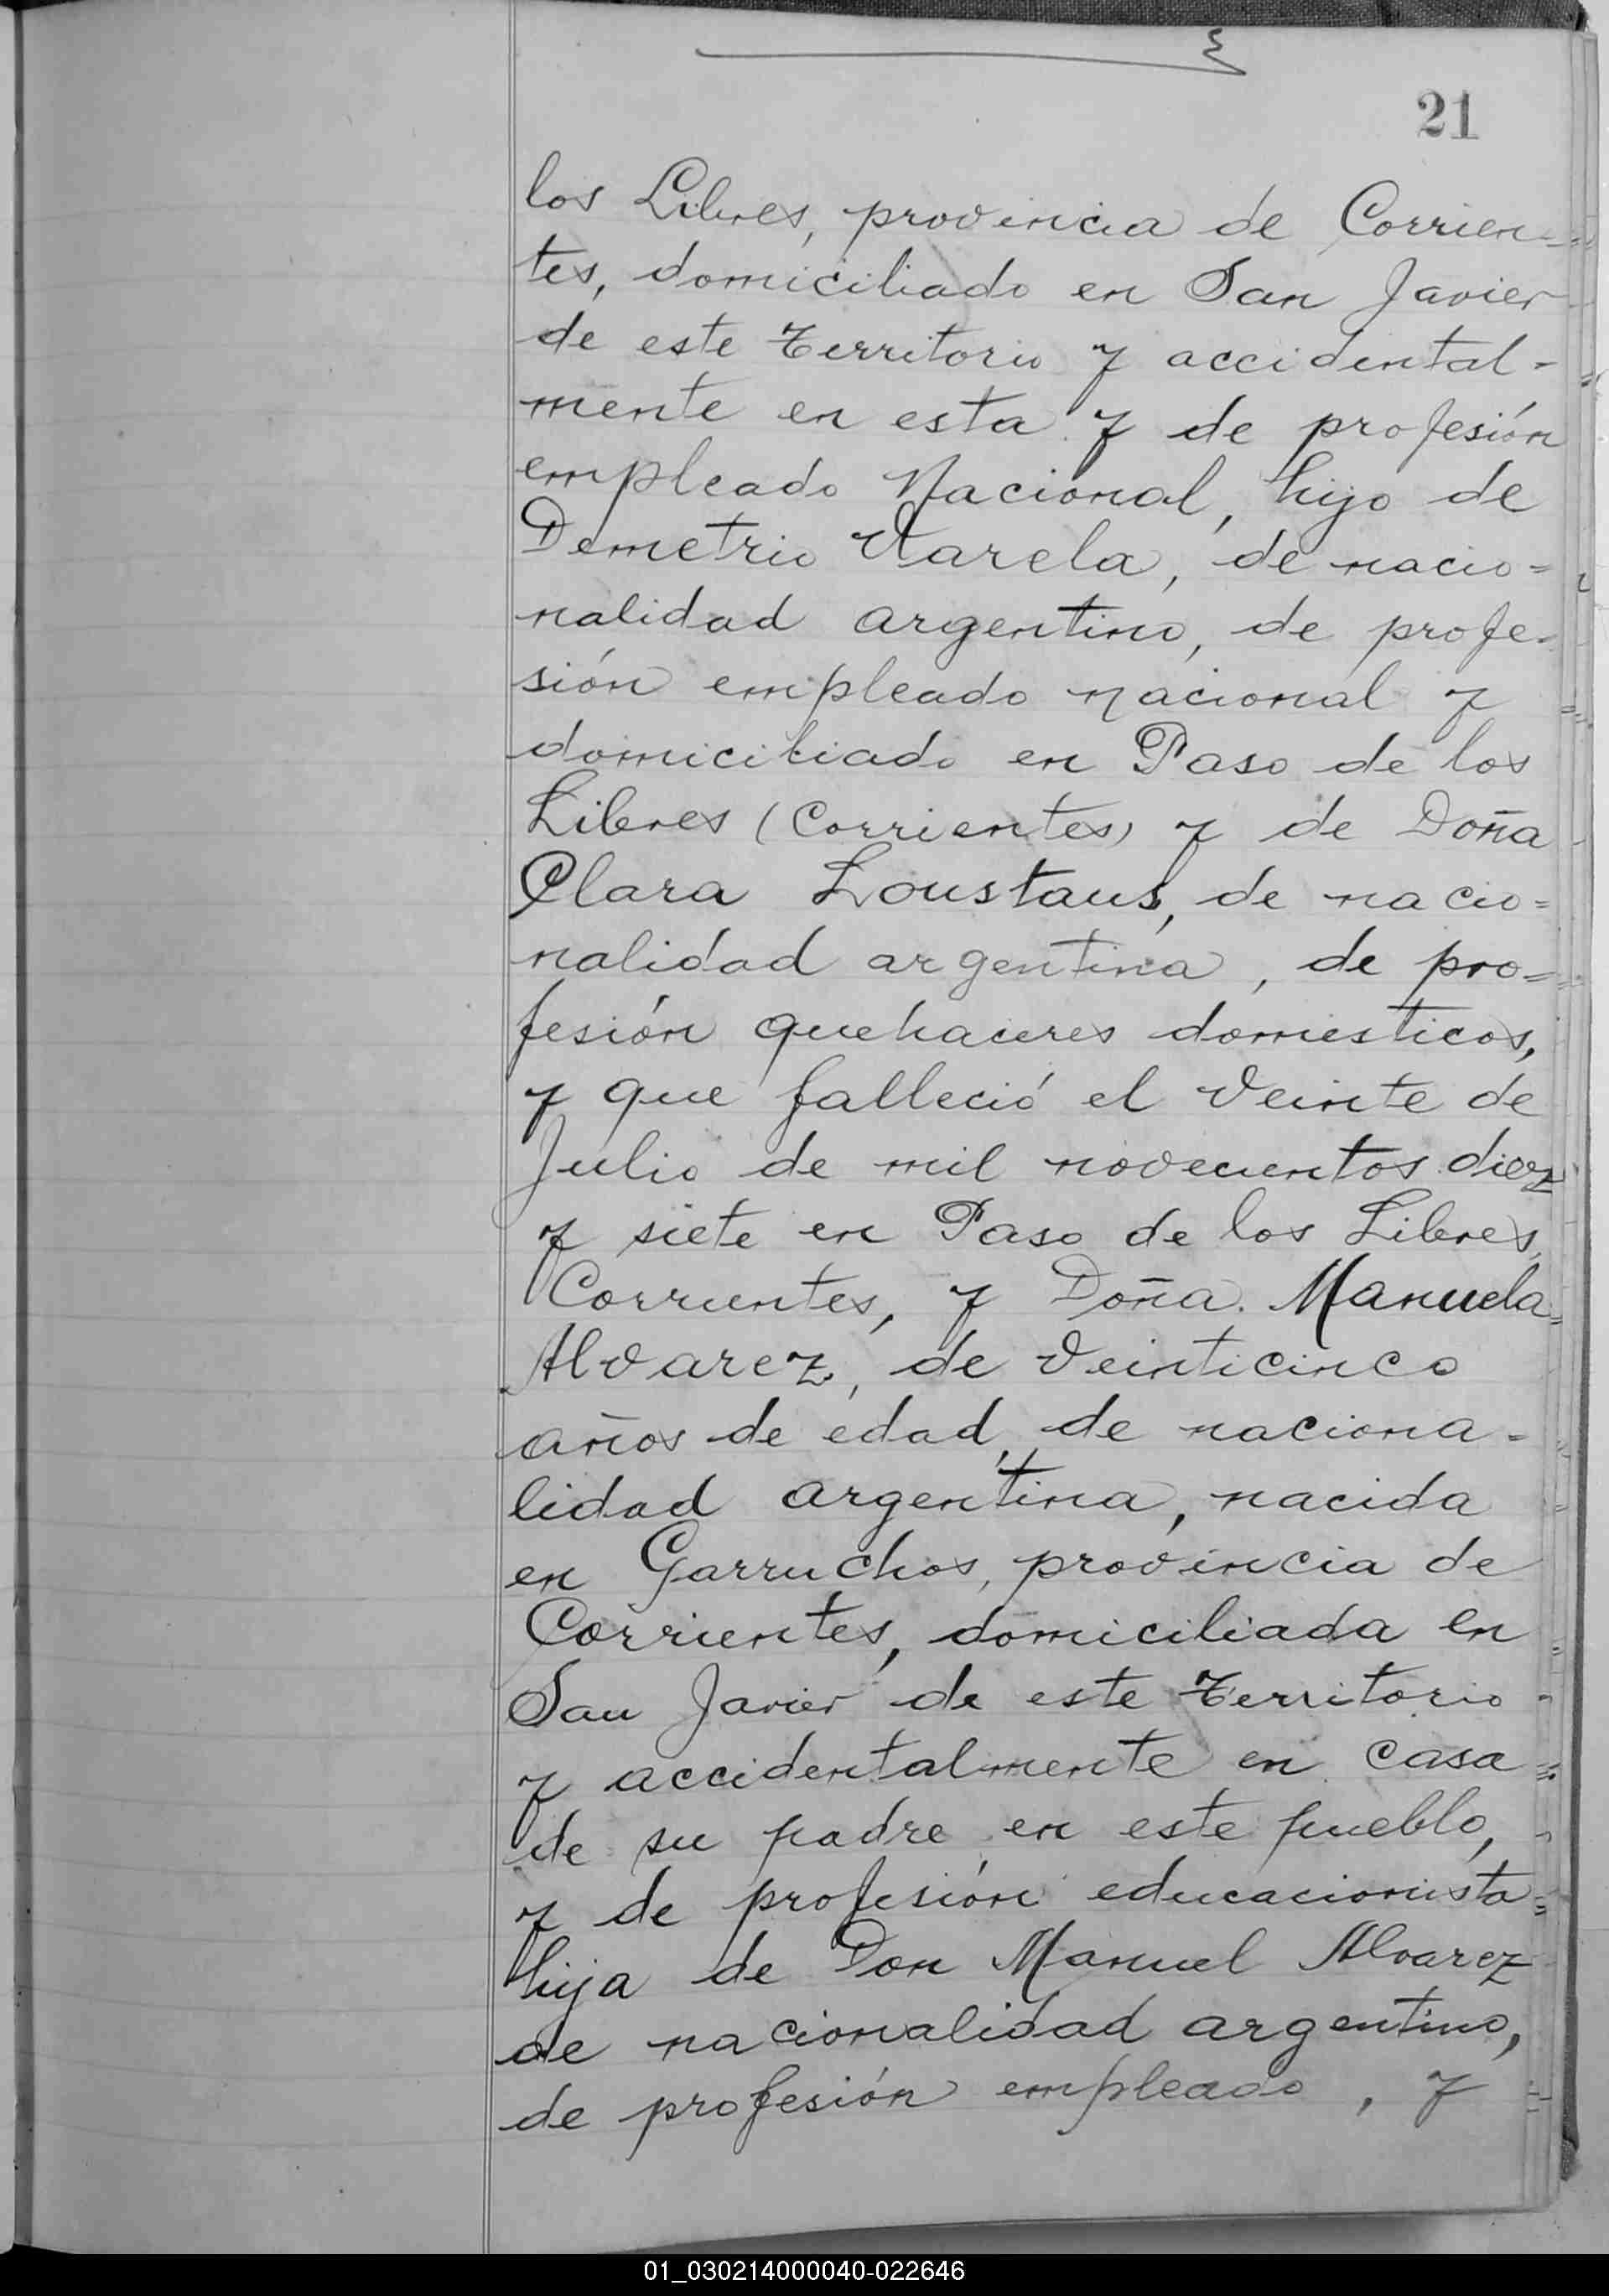 21
los Libres, provincia de Corrien=
tes, domiciliado en San Javier
de este Territorio y accidental=
mente en esta y de profesión
empleado Nacional, hijo de
Demetrio Varela, de nacio=
nalidad argentino, de profe=
sión empleado nacional y
domiciliado en Paso de los
Libres (Corrientes) y de Doña
Clara Loustaus, de nacio=
nalidad argentina, de pro=
fesión quehaceres domesticos,
y que falleció el veinte de
Julio de mil novecientos diez
y siete en Paso de los Libres,
Corrientes, y Doña Manuela
Alvarez, de veinticinco
años de edad, de naciona=
lidad argentina, nacida
en Garruchos, provincia de
Corrientes, domiciliada en
San Javier de este Territorio
y accidentalmente en casa
de su padre en este pueblo,
y de profesión educacionista
hija de Don Manuel Alvarez
de nacionalidad argentino,
de profesión empleado, y
01_030214000040-022646